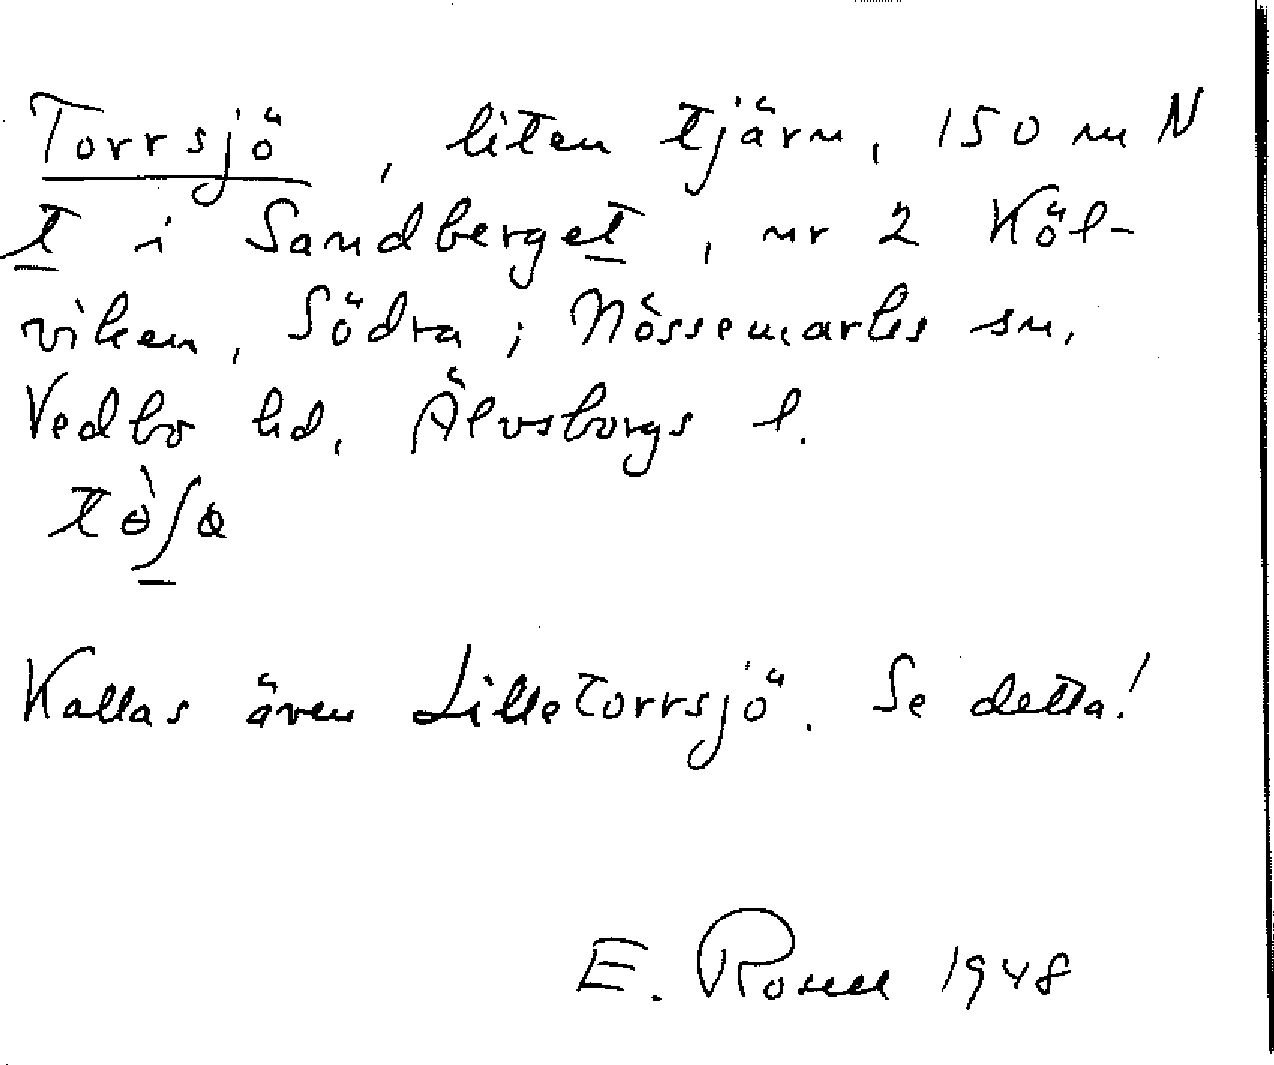 Torrsjö, liten tjärn, 150 m N
t i Sandberget, nr 2 Köl-
viken, Södra; Nössemarks sn,
Vedbo hd, Älvsborgs l.
Kallas även Lilletorrsjö. Se detta!
E. Rosell 1948